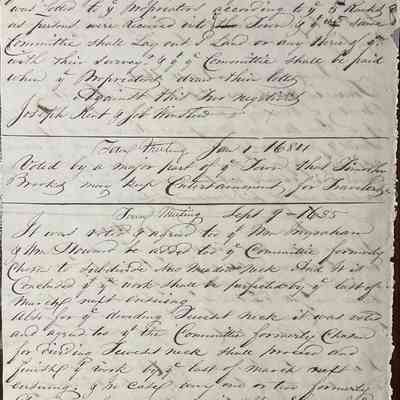 was voted to yᵉ Proprietors according to yᵉ 5 Ranks
as persons were received into yᵉ Town & yᵉ same
Committee shall Lay out Land or any
with their Survayʳ & yᵉ Committee shall be paid
when yᵉ Proprietors draw their lotts
Against this two negatives
Joseph Kent & Job Winslow
Town Meeting Jan 1 - 1684
Voted by a major part of yᵉ Town that Timothy
Brooks may keep Entertainment, for Travelers
Town Meeting Sept 9 - 1685
It was voted & agreed to yᵗ Wm Ingraham
& Wm Howard be added to yᵉ Committee formerly
Chose to subdivide Neck And it is
Concluded yᵗ yᵉ work shall be perfected by yᵉ last of
March next ensuing
Also for yᵉ dividing neck it was voted
and agreed to yᵗ the Committee formerly Chosen
for dividing neck shall proceed and
finish yᵉ work by yᵉ last of march next
ensuing, & in case any one or two formerly